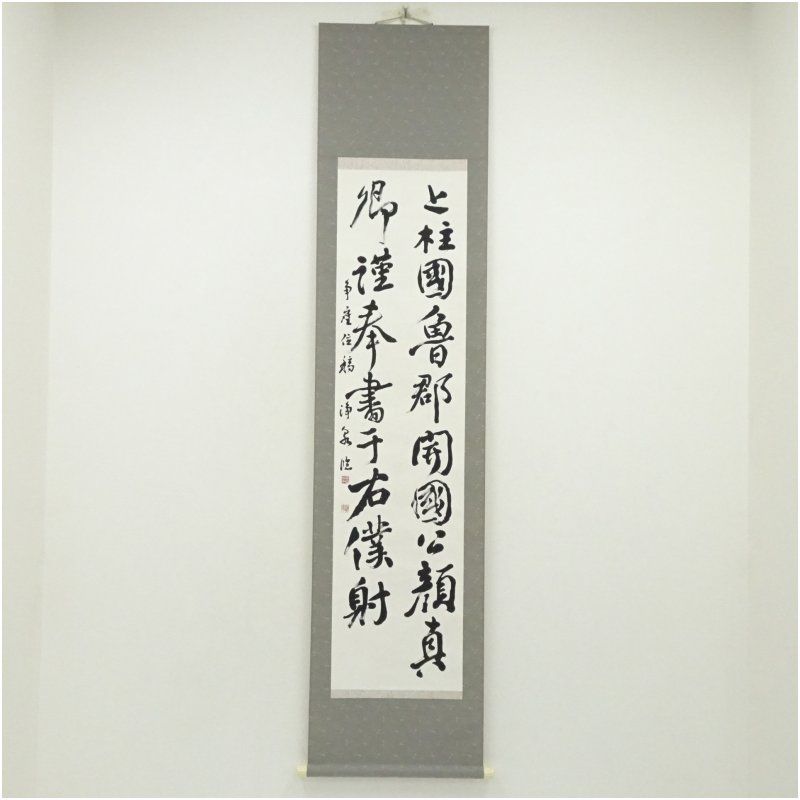 上柱國魯郡開國公顏真
卿謹奉書于右僕射
争座位稿 浄泉臨